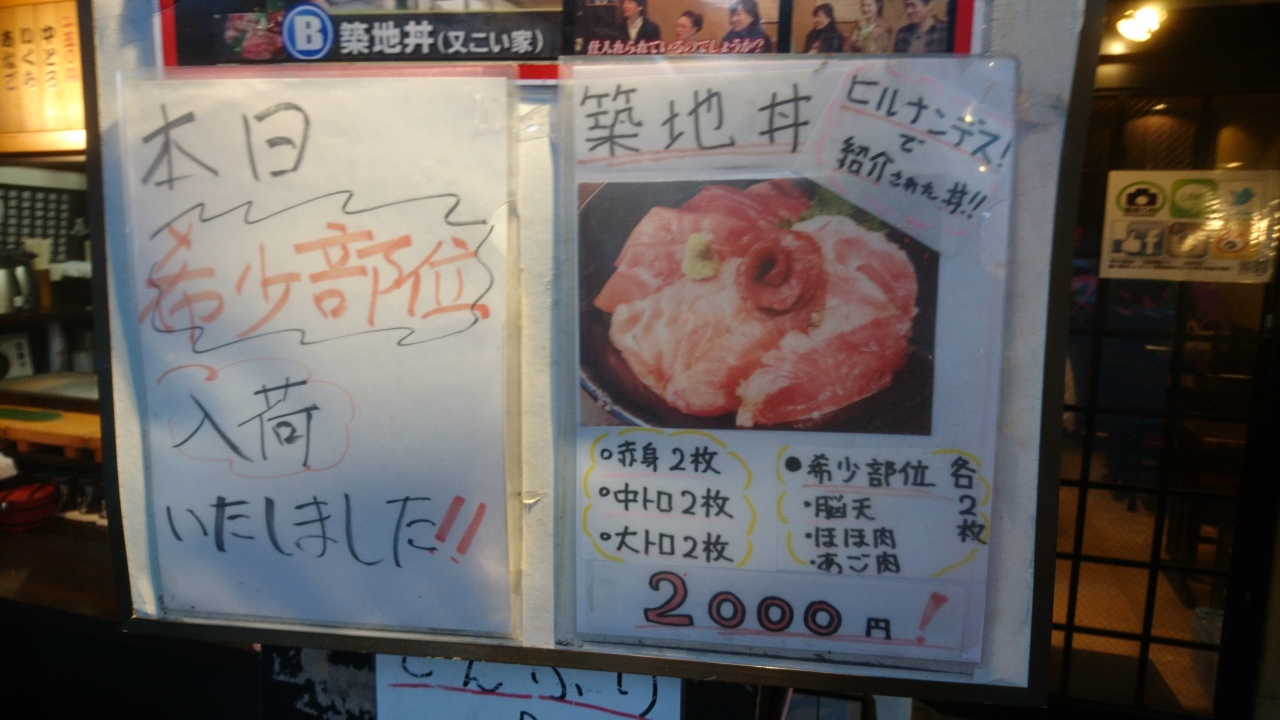 B 築地丼(又こい家)
仕入れられているのでしょうか?
本日
希少部位
入荷
いたしました!!
築地丼
ヒルナンデス!
で
紹介された丼!!
赤身2枚
中トロ2枚
大トロ2枚
希少部位 各2枚
・脳天
・ほほ肉
・あご肉
2000円!
どんぶり